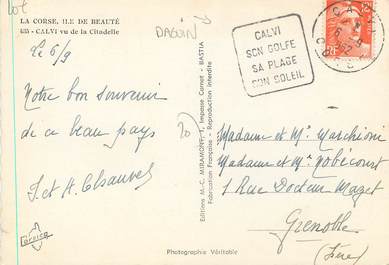 20€
LA CORSE, ILE DE BEAUTÉ
- CALVI vu de la Citadelle
DAGUIN
Le 6/9
Notre bon souvenir
de ce beau pays
J. et H.
Corsica
CALVI
SON GOLFE
SA PLAGE
SON SOLEIL
CALVI
CORSE
20
Editions M.-C. MIRAMONT, 1, Impasse Carnot - BASTIA
Fabrication Française - Reproduction interdite
Madame et Mr Marchioni
Madame et Mr Nobécourt
1 Rue Docteur Mazet
Grenoble
(Isère)
Photographie Véritable